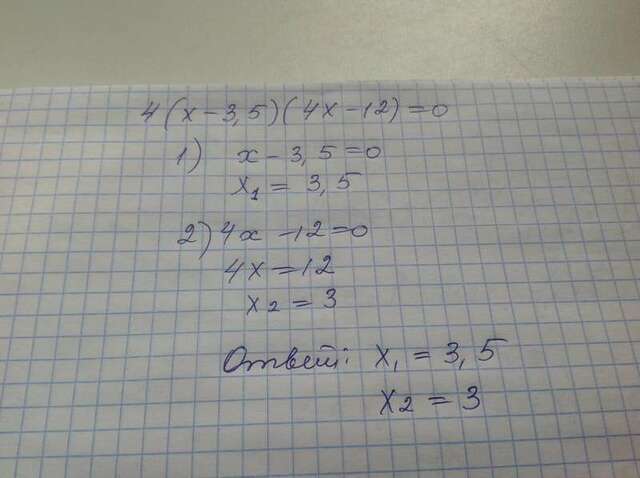 4(x-3,5)(4x-12)=0
1) x-3,5=0
x₁=3,5
2) 4x-12=0
4x=12
x₂=3
Ответ: x₁=3,5
x₂=3